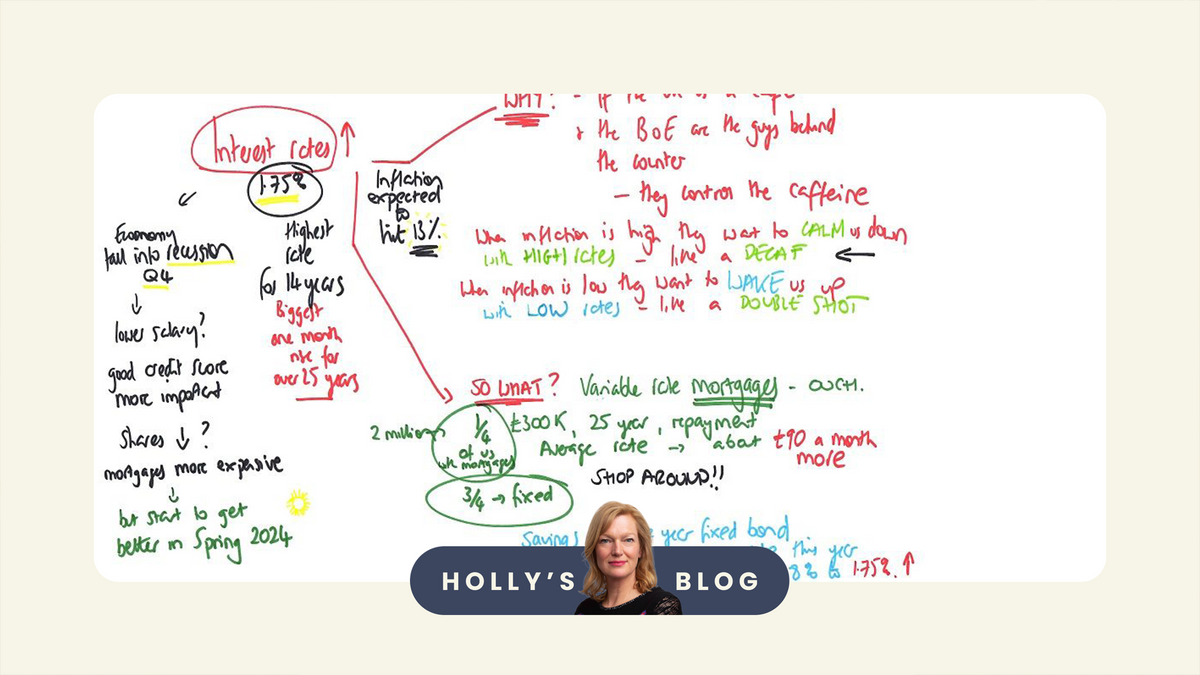 Interest rates ↑
1.75%
Highest
rate
for 14 years
Biggest
one month
rise for
over 25 years
Economy
fall into recession
Q4
↓
lower salary?
good credit score
more important
Shares ↓ ?
mortgages more expensive
↓
but start to get
better in Spring 2024
Inflation
expected
to
hit 13%
WHY? - If the
& the BoE are the guys behind
the counter
- they control the caffeine
When inflation is high they want to CALM us down
with HIGH rates - like a DECAF ←
When inflation is low they want to WAKE us up
with LOW rates - like a DOUBLE SHOT
SO WHAT? Variable rate mortgages - OUCH.
2 million
1/4
of us
with mortgages
£300K, 25 year, repayment
Average rate → about £90 a month
more
SHOP AROUND!!
3/4 → fixed
Savings year fixed bond
this year
8% to 1.75% ↑
HOLLY'S BLOG